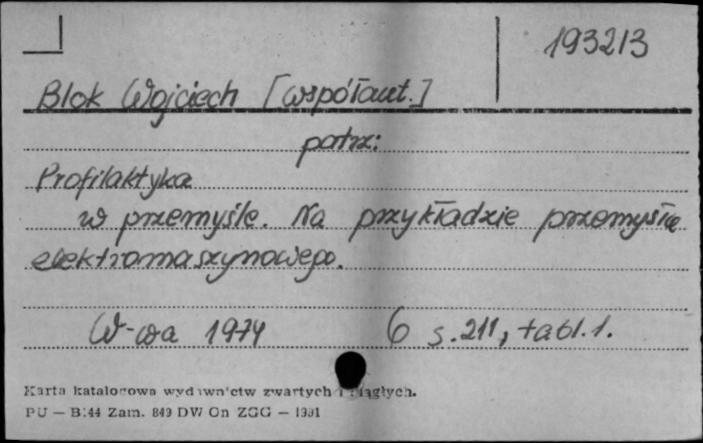 193213
Blok Wojciech [współaut.]
patrz:
Profilaktyka
w przemyśle. Na przykładzie przemysłu
elektromaszynowego.
W-wa 1974 6 s. 211, tabl. 1.
Karta katalogowa wydawnictw zwartych i ciągłych.
PU — B.44 Zam. 849 DW On ZGG — 1991